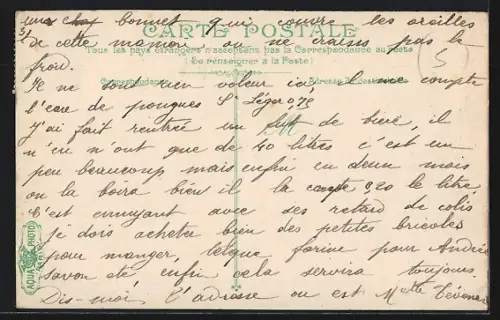 bonnet qui couvre les oreilles
de cette manière on ne crains pas le
CARTE POSTALE
Tous les pays étrangers n'acceptent pas la Correspondance au recto
(Se renseigner à la Poste)
froid.
Correspondance
Adresse du destinataire
Je ne sont rien voleur ici, l me compte
l'eau de pougues St Léger 0,75
J'ai fait rentrée un fut de bière, il
n'en n'ont que de 40 litres c'est un
peu beaucoup mais enfin en deux mois
on la boira bien il la compte 0,20 le litre,
C'est ennuyant avec ses retard de colis
je dois acheter bien des petites bricoles
pour manger, farine pour André
savon etc enfin cela servira toujours.
Dis-moi l'adresse ou est Mette
AQUA PHOTO
PARIS
5